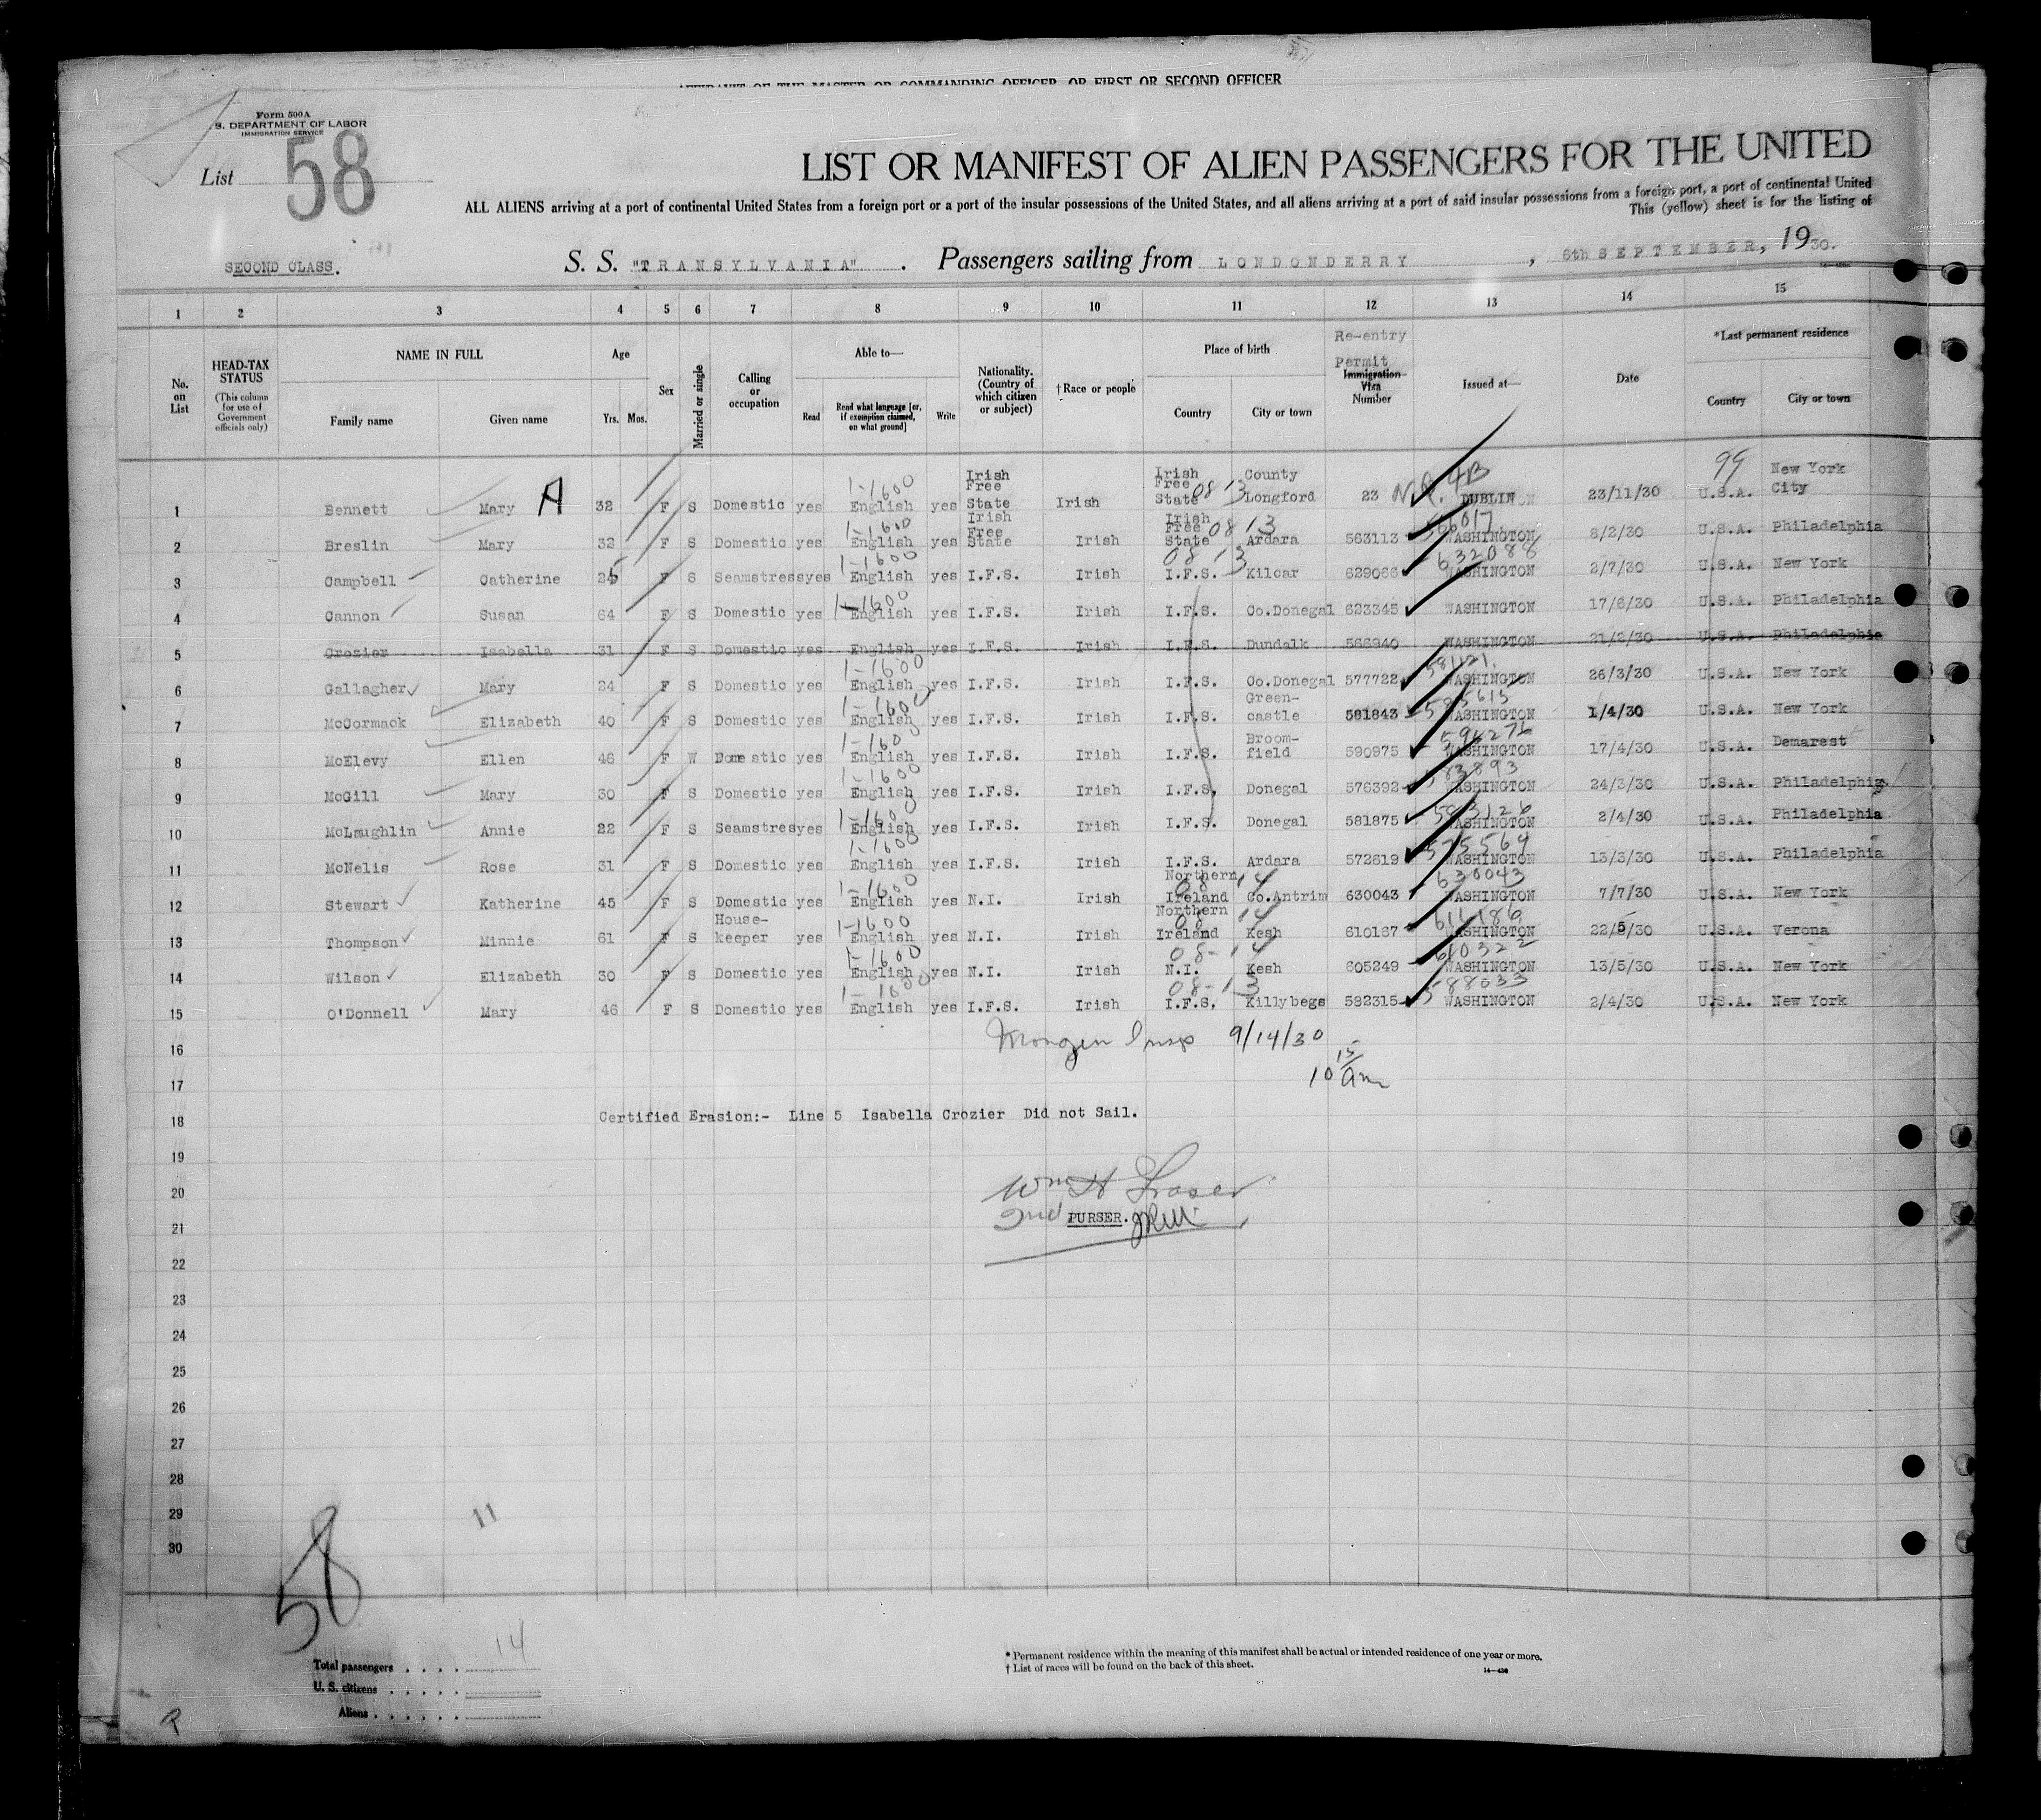 AFFIDAVIT OF THE MASTER OR COMMANDING OFFICER, OR FIRST OR SECOND OFFICER
Form 500 A
S. DEPARTMENT OF LABOR
IMMIGRATION SERVICE
List 58
LIST OR MANIFEST OF ALIEN PASSENGERS FOR THE UNITED
ALL ALIENS arriving at a port of continental United States from a foreign port or a port of the insular possessions of the United States, and all aliens arriving at a port of said insular possessions from a foreign port, a port of continental United
This (yellow) sheet is for the listing of
SECOND CLASS. S. S. "TRANSYLVANIA". Passengers sailing from LONDONDERRY, 6th SEPTEMBER, 1930.
1 2 3 4 5 6 7 8 9 10 11 12 13 14 15
No. on List
HEAD-TAX STATUS (This column for use of Government officials only)
NAME IN FULL Family name Given name
Age Yrs. Mos.
Sex
Married or single
Calling or occupation
Able to— Read Read what language [or, if exemption claimed, on what ground] Write
Nationality. (Country of which citizen or subject)
†Race or people
Place of birth Country City or town
Re-entry Permit Immigration Visa Number
Issued at—
Date
*Last permanent residence Country City or town
1 Bennett Mary A 32 F S Domestic yes 1-1600 English yes Irish Free State Irish Irish Free State 08 13 County Longford 23 N.Q. 4B DUBLIN 23/11/30 99 U.S.A. New York City
2 Breslin Mary 32 F S Domestic yes 1-1600 English yes Irish Free State Irish Irish Free State 08 13 Ardara 563113 WASHINGTON 8/2/30 U.S.A. Philadelphia
3 Campbell Catherine 25 F S Seamstress yes 1-1600 English yes I.F.S. Irish 08 13 I.F.S. Kilcar 629066 632088 WASHINGTON 2/7/30 U.S.A. New York
4 Cannon Susan 64 F S Domestic yes 1-1600 English yes I.F.S. Irish I.F.S. Co.Donegal 623345 WASHINGTON 17/6/30 U.S.A. Philadelphia
5 Crozier Isabella 31 F S Domestic yes English yes I.F.S. Irish I.F.S. Dundalk 566940 WASHINGTON 21/2/30 U.S.A. Philadelphia
6 Gallagher Mary 24 F S Domestic yes 1-1600 English yes I.F.S. Irish I.F.S. Co.Donegal 577722 581121 WASHINGTON 26/3/30 U.S.A. New York
7 McCormack Elizabeth 40 F S Domestic yes 1-1600 English yes I.F.S. Irish I.F.S. Green-castle 581843 585615 WASHINGTON 1/4/30 U.S.A. New York
8 McElevy Ellen 46 F W Domestic yes 1-1600 English yes I.F.S. Irish I.F.S. Broom-field 590975 594276 WASHINGTON 17/4/30 U.S.A. Demarest
9 McGill Mary 30 F S Domestic yes 1-1600 English yes I.F.S. Irish I.F.S. Donegal 576392 583893 WASHINGTON 24/3/30 U.S.A. Philadelphia
10 McLaughlin Annie 22 F S Seamstres yes 1-1600 English yes I.F.S. Irish I.F.S. Donegal 581875 WASHINGTON 2/4/30 U.S.A. Philadelphia
11 McNelis Rose 31 F S Domestic yes 1-1600 English yes I.F.S. Irish I.F.S. Ardara 572619 575564 WASHINGTON 13/3/30 U.S.A. Philadelphia
12 Stewart Katherine 45 F S Domestic yes 1-1600 English yes N.I. Irish Northern Ireland 08 14 Co.Antrim 630043 630043 WASHINGTON 7/7/30 U.S.A. New York
13 Thompson Minnie 61 F S House-keeper yes 1-1600 English yes N.I. Irish Northern Ireland 08 14 Kesh 610167 611186 WASHINGTON 22/5/30 U.S.A. Verona
14 Wilson Elizabeth 30 F S Domestic yes 1-1600 English yes N.I. Irish 08-14 N.I. Kesh 605249 610322 WASHINGTON 13/5/30 U.S.A. New York
15 O'Donnell Mary 46 F S Domestic yes 1-1600 English yes I.F.S. Irish 08-13 I.F.S. Killybegs 582315 588033 WASHINGTON 2/4/30 U.S.A. New York
16 Insp 9/14/30
17 10 15 am
18 Certified Erasion:- Line 5 Isabella Crozier Did not Sail.
19
20 Wm H Fraser
21 2nd PURSER.
22
23
24
25
26
27
28
29 11
30
58
14
Total passengers
U. S. citizens
Aliens
* Permanent residence within the meaning of this manifest shall be actual or intended residence of one year or more.
† List of races will be found on the back of this sheet.
P